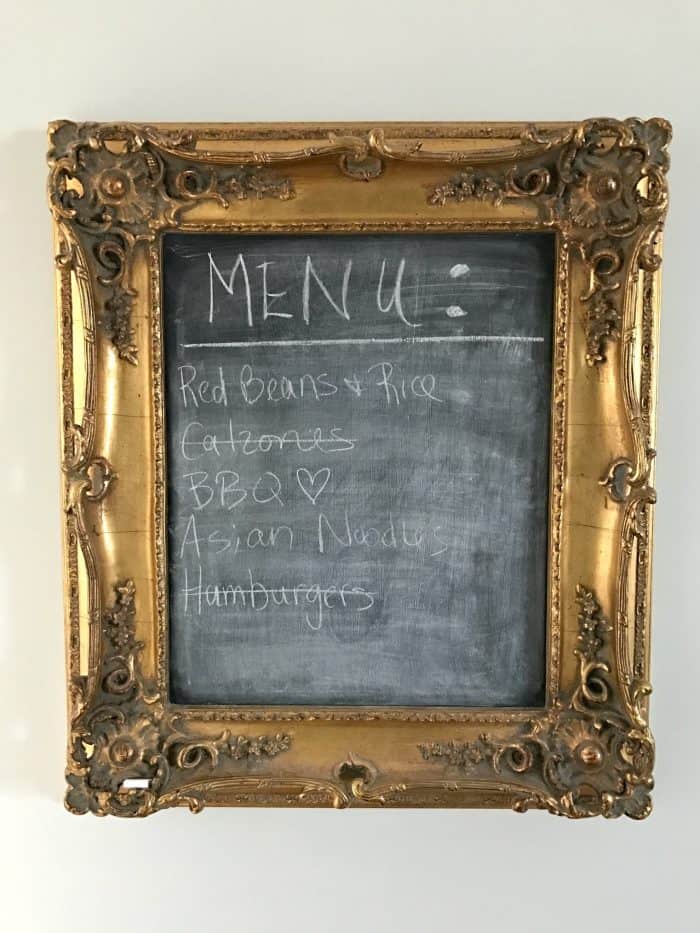 MENU:
Red Beans & Rice
Calzones
BBQ ♡
Asian Noodles
Hamburgers